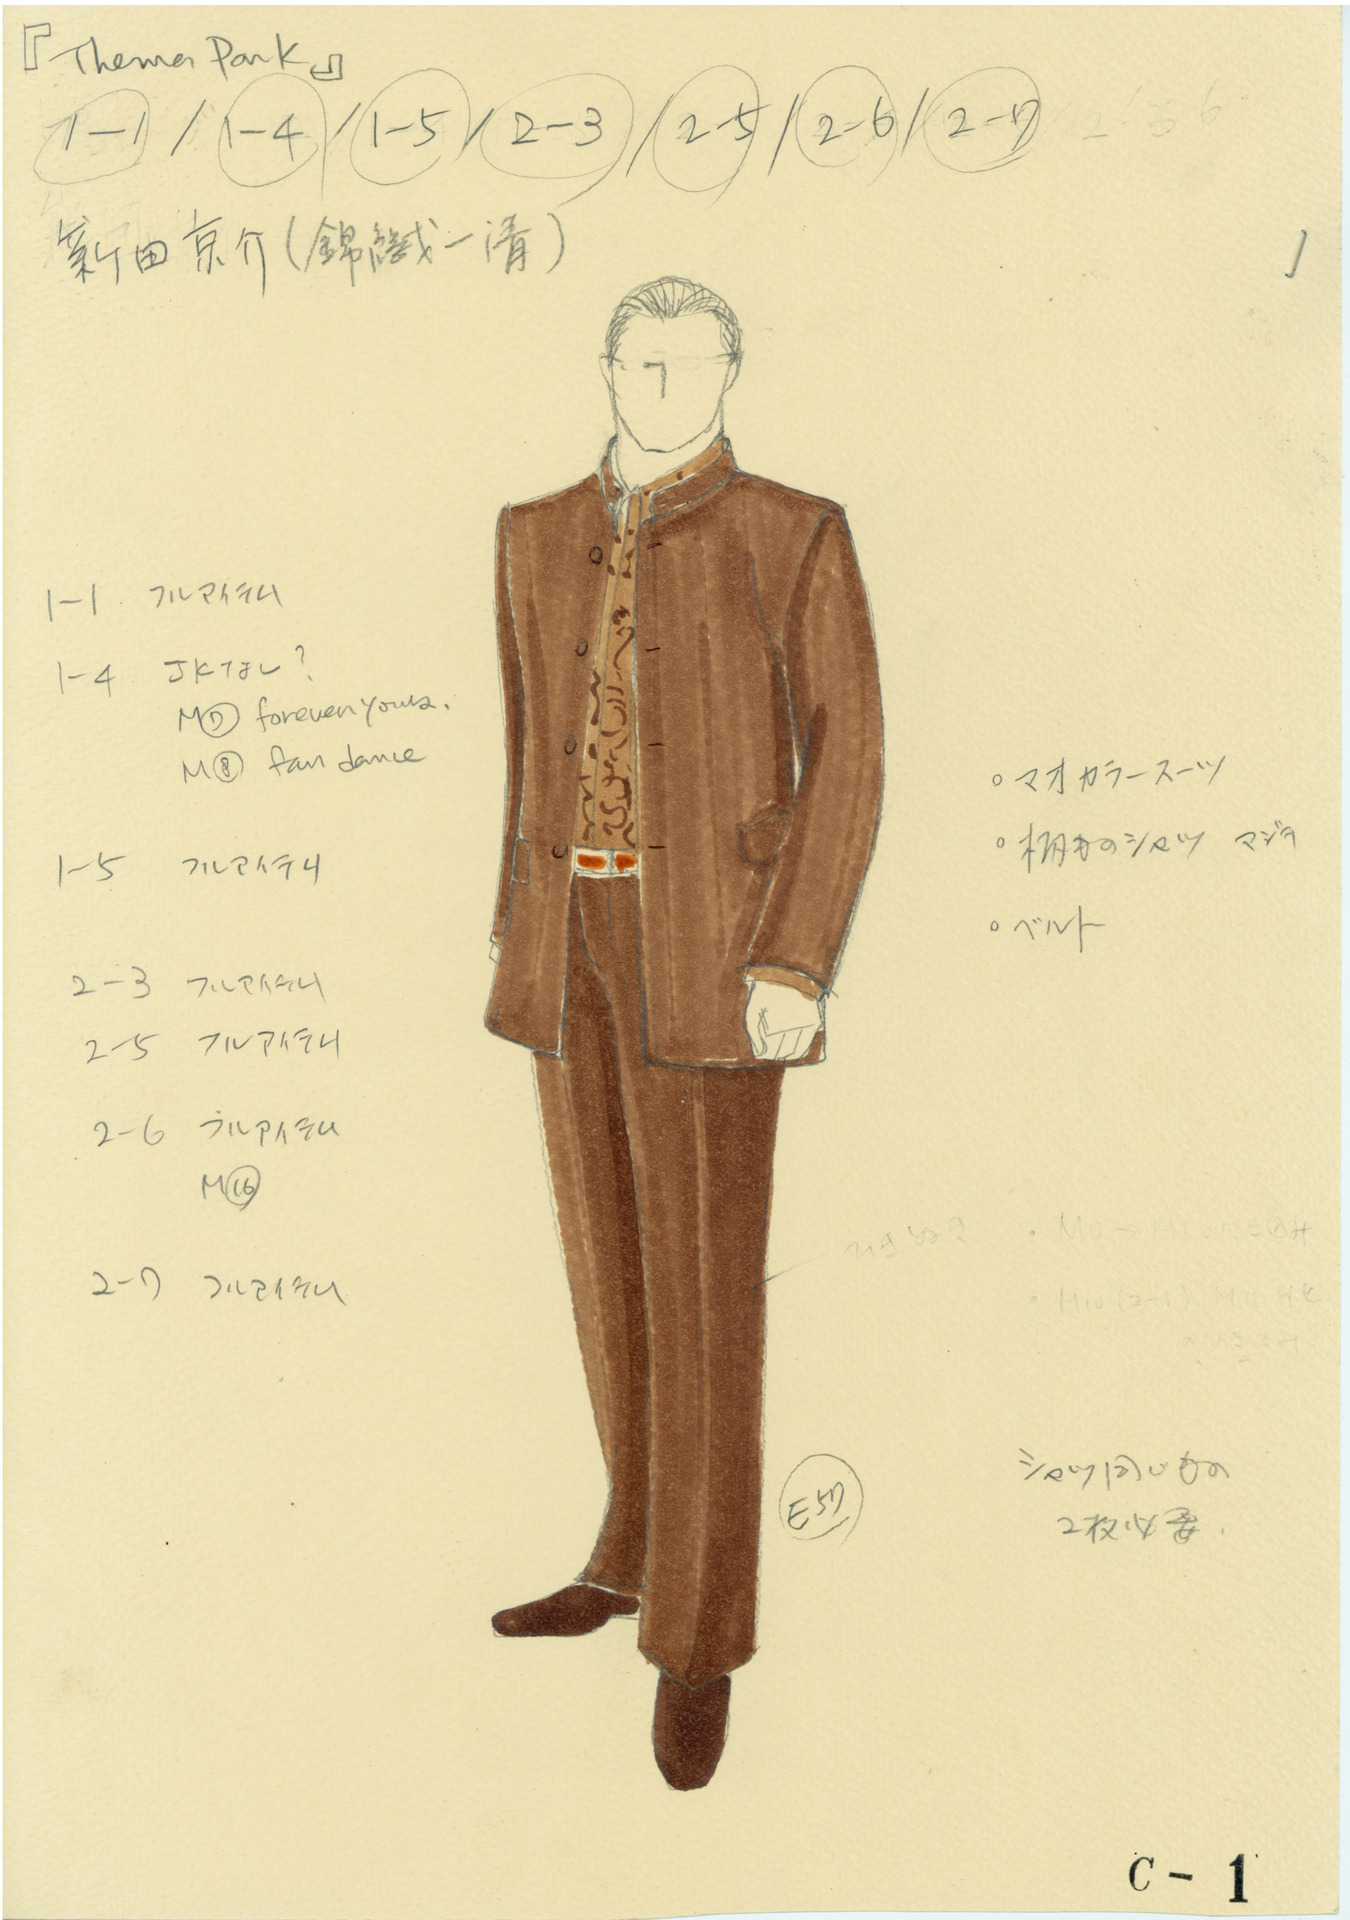 『Thema Park』
1-1 / 1-4 / 1-5 / 2-3 / 2-5 / 2-6 / 2-7
新田京介(錦織一清)
1-1 フルアイテム
1-4 JKなし?
M⑦ forever yours.
M⑧ fan dance
1-5 フルアイテム
2-3 フルアイテム
2-5 フルアイテム
2-6 フルアイテム
M⑯
2-7 フルアイテム
○マオカラースーツ
○柄物のシャツ
○ベルト
E57
シャツ同じもの
2枚必要.
C-1